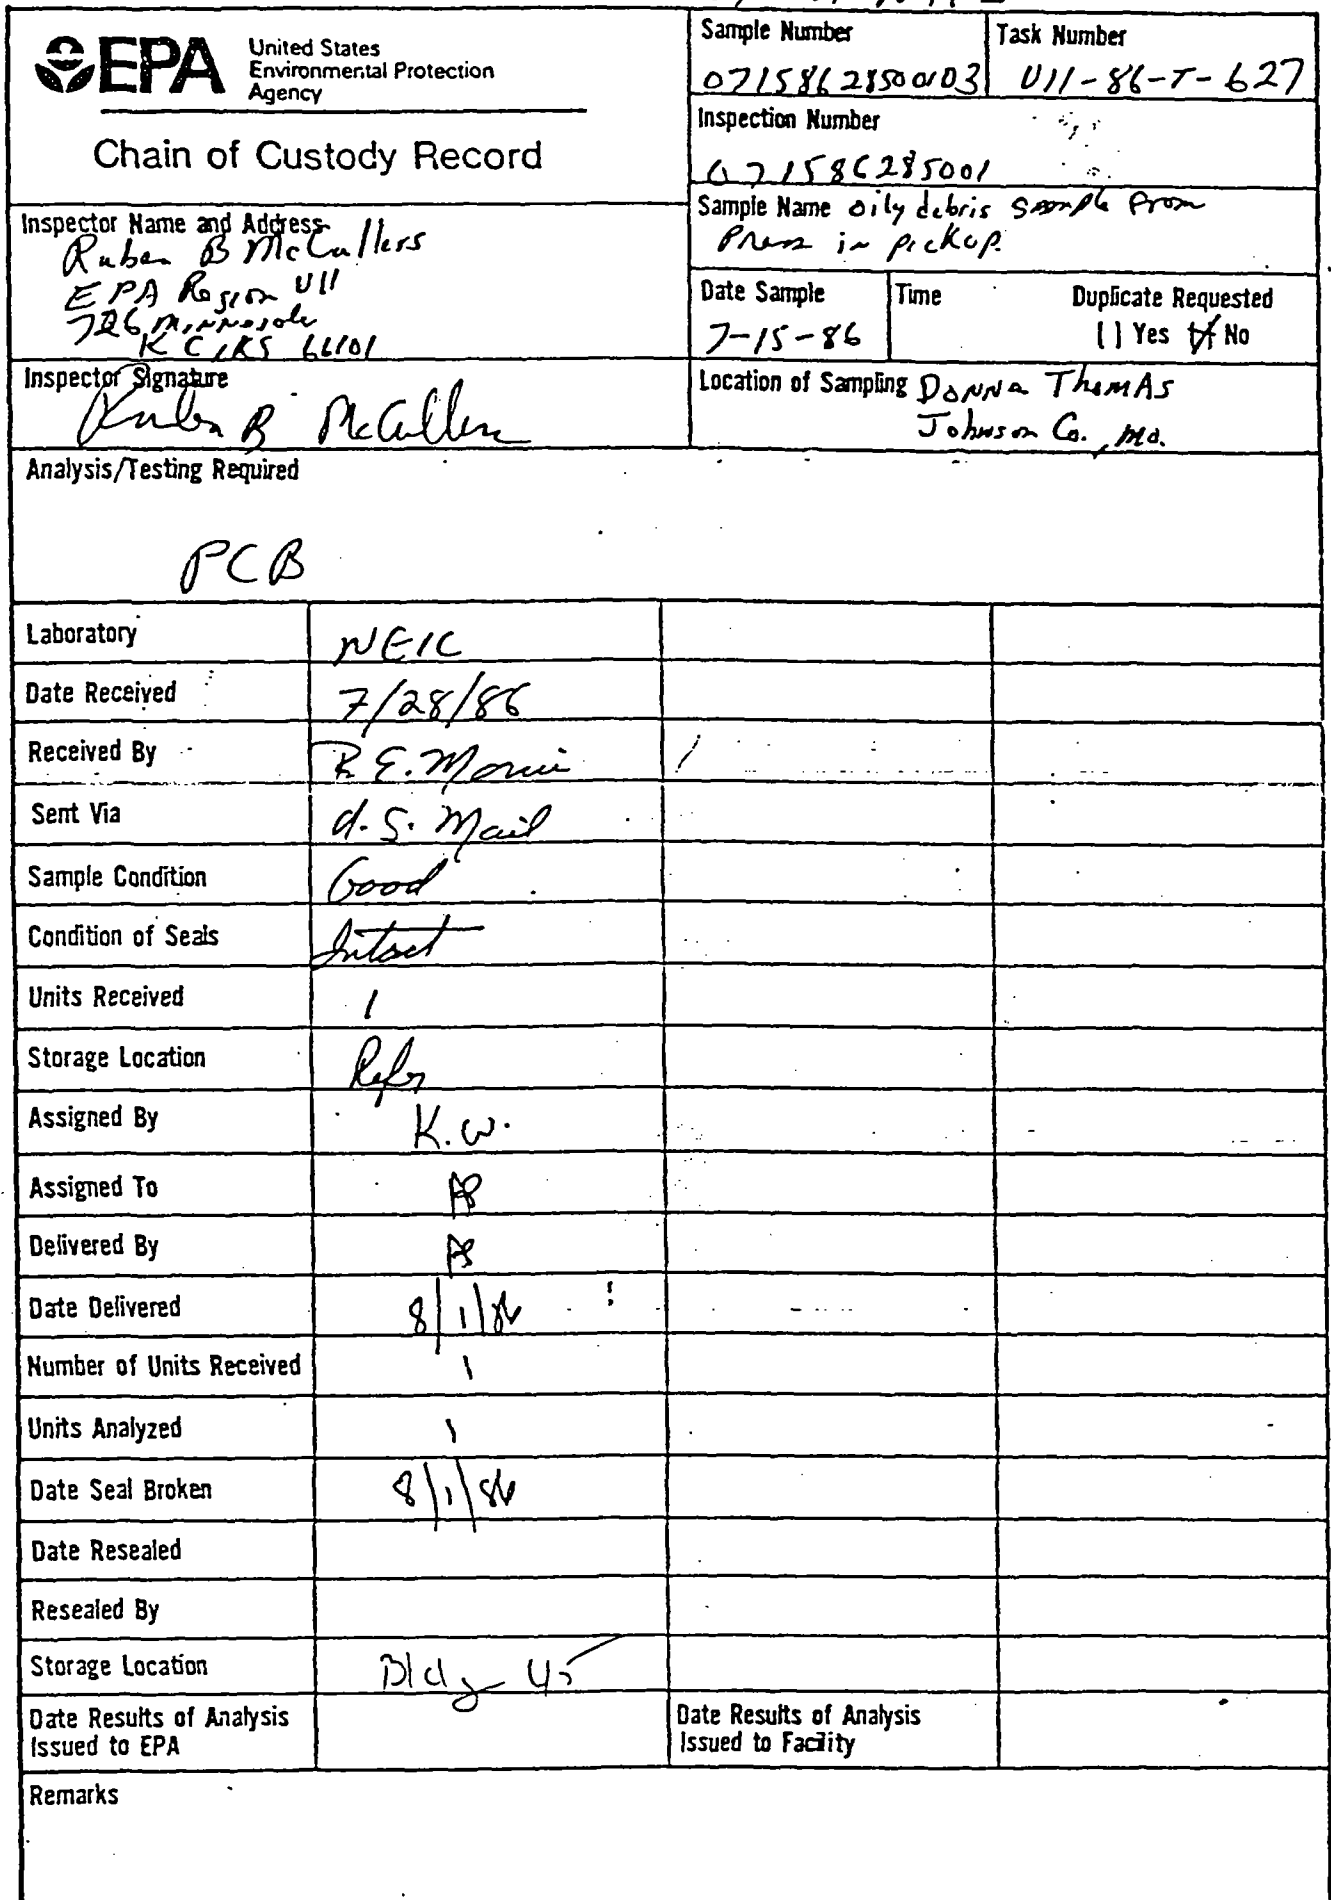 EPA
United States
Environmental Protection
Agency
Chain of Custody Record
Sample Number
Task Number
VII-86-T-627
Inspection Number
071586285001
Sample Name oily debris sample from
Press in pickup.
Inspector Name and Address
Ruben B McCullers
EPA Region VII
726 Minnesota
KC, KS 66101
Date Sample
7-15-86
Time
Duplicate Requested
[ ] Yes [X] No
Inspector Signature
Ruben B McCullers
Location of Sampling Donna Thomas
Johnson Co., Mo.
Analysis/Testing Required
PCB
Laboratory NEIC
Date Received 7/28/86
Received By R E.
Sent Via U.S. Mail
Sample Condition Good
Condition of Seals Intact
Units Received 1
Storage Location
Assigned By K.W.
Assigned To
Delivered By
Date Delivered 8/1/86
Number of Units Received 1
Units Analyzed 1
Date Seal Broken 8/1/86
Date Resealed
Resealed By
Storage Location Bldg 45
Date Results of Analysis
Issued to EPA
Date Results of Analysis
Issued to Facility
Remarks